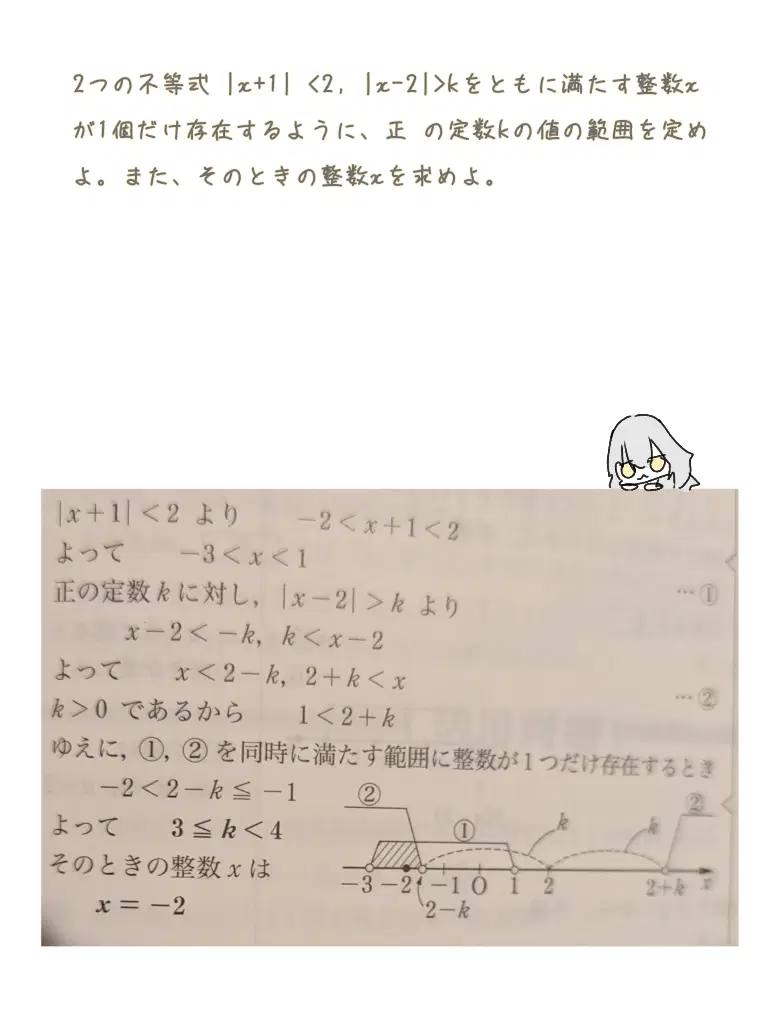 2つの不等式 |x+1| <2, |x-2|>kをともに満たす整数x
が1個だけ存在するように、正 の定数kの値の範囲を定め
よ。また、そのときの整数xを求めよ。
|x+1|<2 より -2<x+1<2
よって -3<x<1
…①
正の定数kに対し, |x-2|>k より
x-2<-k, k<x-2
よって x<2-k, 2+k<x
…②
k>0 であるから 1<2+k
ゆえに, ①, ②を同時に満たす範囲に整数が1つだけ存在するとき
-2<2-k≦-1
よって 3≦k<4
そのときの整数xは
x=-2
② ① k k ②
-3 -2 -1 0 1 2 2+k x
2-k